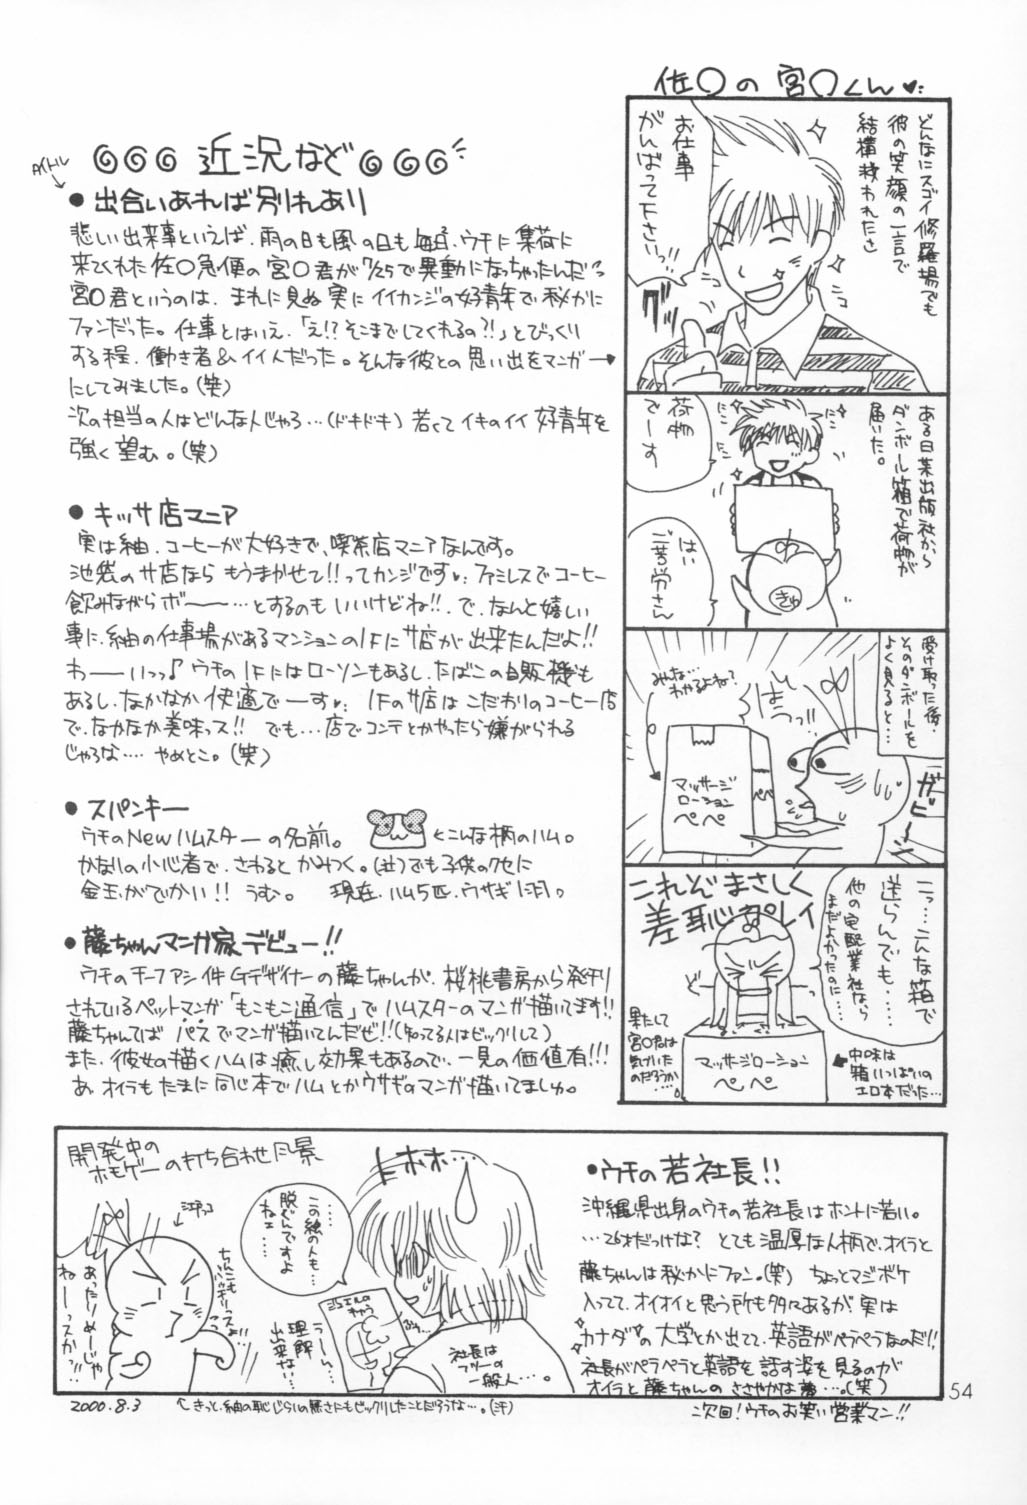 佐〇の宮〇くん♥
◎◎◎ 近況など ◎◎◎
タイトル
● 出合いあれば別れあり
悲しい出来事といえば、雨の日も風の日も毎日、ウチに集荷に
来てくれた佐〇急便の宮〇君が7/25で異動になっちゃったんだっ
宮〇君というのは、まれに見ぬ実にイイカンジの好青年で秘かに
ファンだった。仕事とはいえ、「え!?そこまでしてくれるの?!」とびっくり
する程、働き者&イイ人だった。そんな彼との思い出をマンガ→
にしてみました。(笑)
次の担当の人はどんな人じゃろ…(ドキドキ)若くてイキのイイ好青年を
強く望む。(笑)
● キッサ店マニア
実は紬、コーヒーが大好きで、喫茶店マニアなんです。
池袋のサ店なら もうまかせて!!ってカンジです♥ ファミレスでコーヒー
飲みながらボー──…とするのもいいけどね!!、で、なんと嬉しい
事に、紬の仕事場があるマンションの1Fにサ店が出来たんだよ!!
わ──いっっ♪ ウチの1Fにはローソンもあるし、たばこの自販機も
あるし、なかなか快適でーす♥ 1Fのサ店はこだわりのコーヒー店
で、なかなか美味っス!! でも…店でコンテとかやったら嫌がられる
じゃろな…. やめとこ。(笑)
● スパンキー
ウチのNewハムスターの名前。 ←こんな柄のハム。
かなりの小心者で、さわるとかみつく。(泣)でも子供のクセに
金玉がでかい!! うむ。 現在、ハム5匹、ウサギ1羽。
● 藤ちゃんマンガ家デビュー!!
ウチのチーファシ件Gデザイナーの藤ちゃんが、桜桃書房から発刊
されているペットマンガ「もこもこ通信」でハムスターのマンガ描いてます!!
藤ちゃんてば パスでマンガ描いてんだぜ!!(知ってる人はビックリして)
また、彼女の描くハムは癒し効果もあるので、一見の価値有!!!
あ、オイラもたまに同じ本でハムとかウサギのマンガ描いてましゅ。
どんなにスゴイ修羅場でも
彼の笑顔の一言で
結構救われたさ
お仕事
がんばって下さいっっ
グッ
ある日某出版社から
ダンボール箱で荷物が
届いた。
荷物
でーす
はい
ご苦労さん
受け取った後、
そのダンボールを
よく見ると…
みんな…
わかるよね?
はっ!!
ガビーン
マッサージ
ローション
ペペ
こっ…こんな箱で
送らんでも…
他の宅配業社なら
まだよかったのに…
これぞまさしく
差恥プレイ
果たして
宮〇君は
気づいた
のだろうか…。
マッサージローション
ペペ
中味は
箱いっぱいの
エロ本だった…
開発中の
ホモゲーの打ち合わせ風景
ホホ…
この絵の人も…
脱ぐんですよ
ねェ……
あったりめーじゃ
ねーっスかっ!!
う〜ん…
理解
出来ない…
社長は
フツーの
一般人…。
● ウチの若社長!!
沖縄県出身のウチの若社長はホントに若い。
…26才だっけな? とても温厚な人柄で、オイラと
藤ちゃんは秘かにファン。(笑) ちょっとマジボケ
入ってて、オイオイと思う所も多々あるが、実は
カナダの大学とか出てて、英語がペラペラなのだ!!
社長がペラペラと英語を話す姿を見るのが
オイラと藤ちゃんのささやかな夢…。(笑)
2000.8.3
↑きっと、紬の恥じらいの無さにもビックリしたことだろうな…。(汗)
次回!ウチのお笑い営業マン!!
54